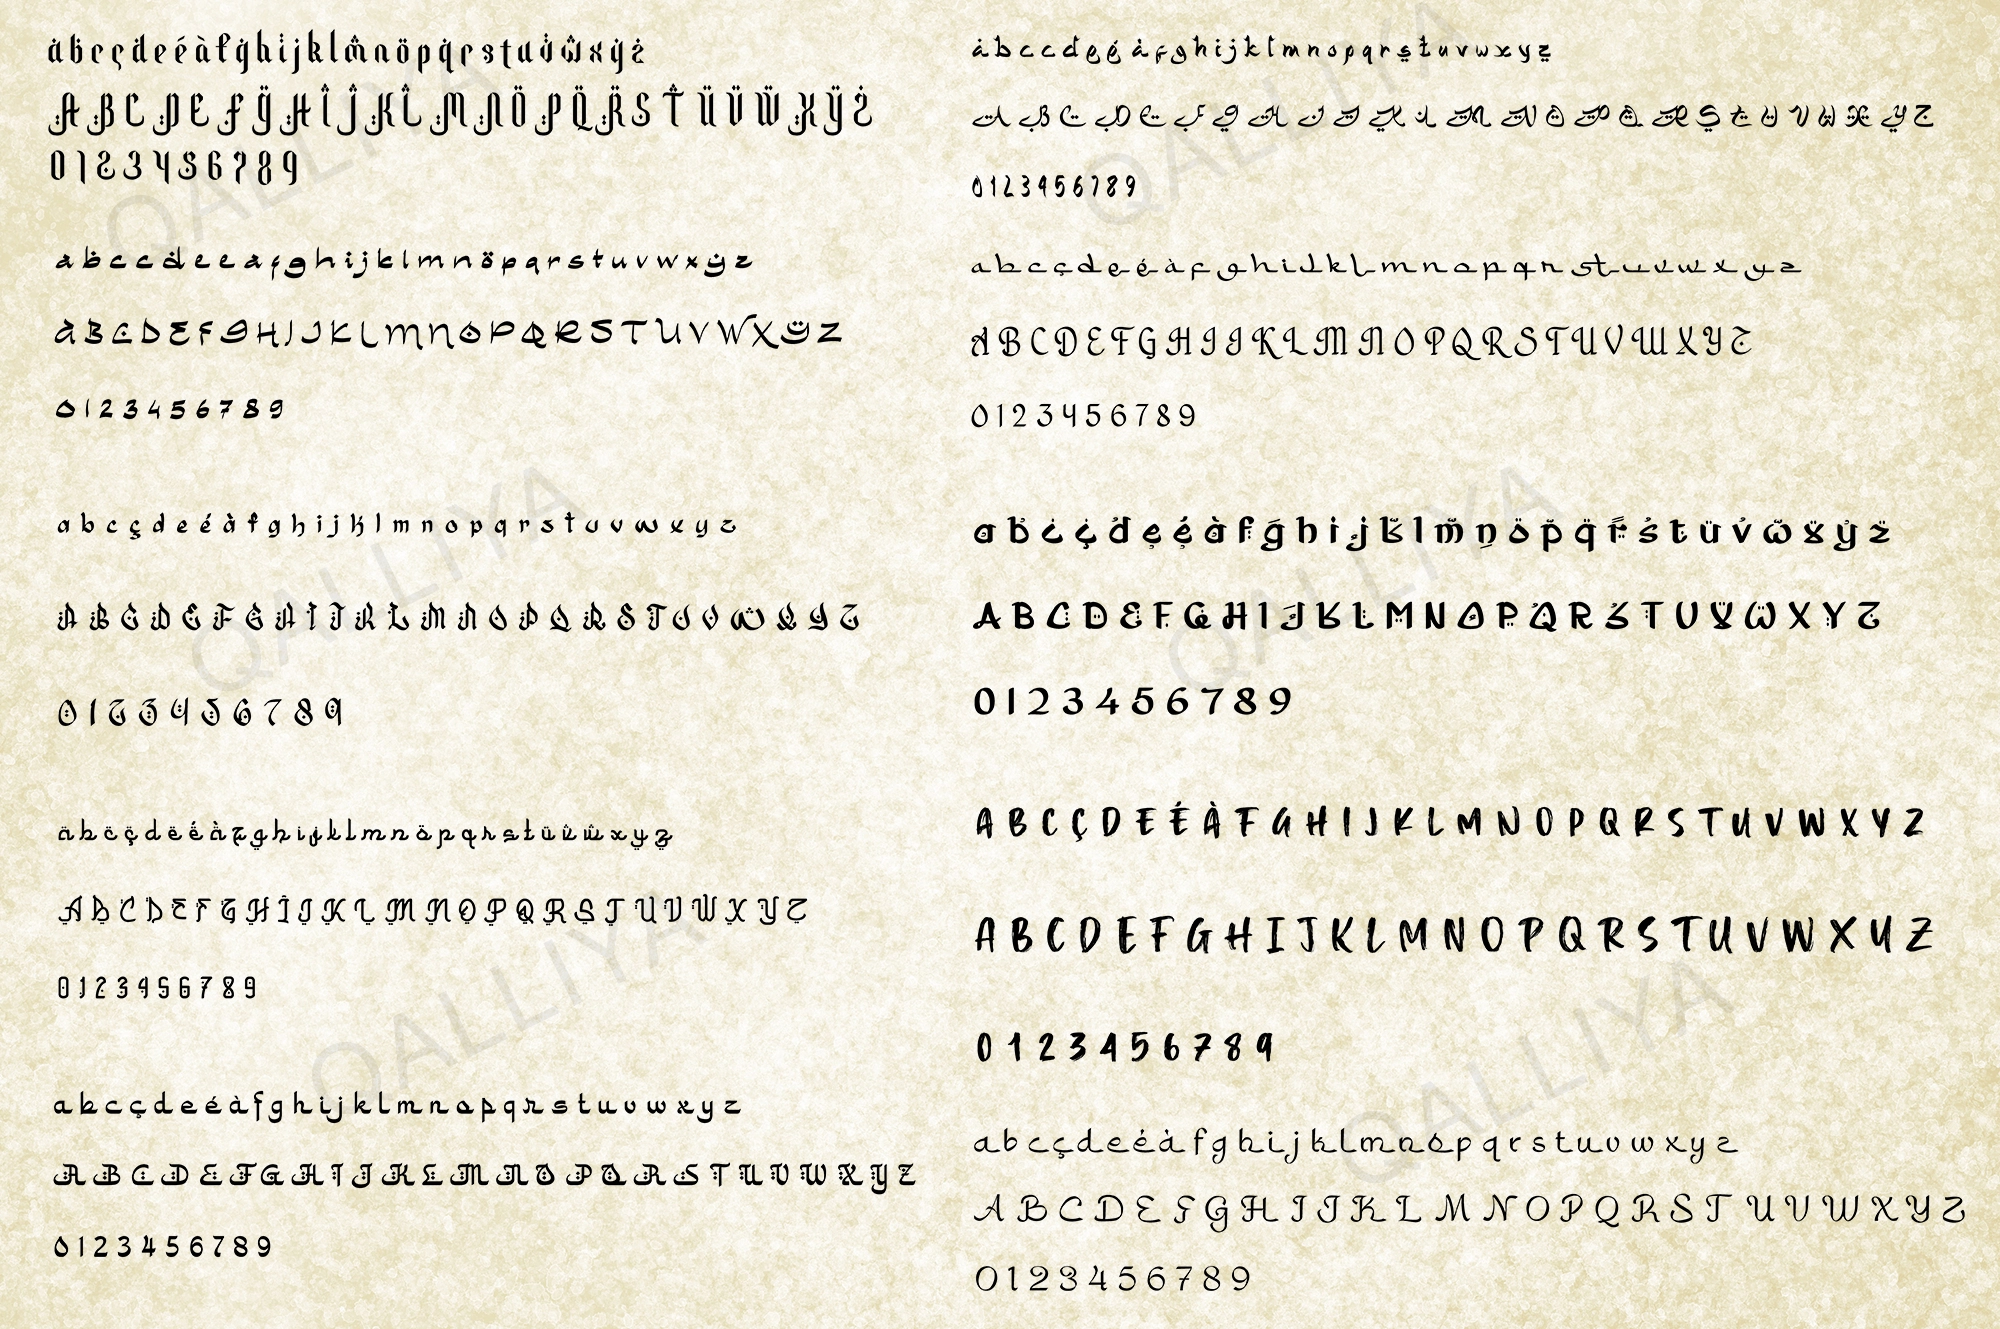 abcçdeéàfghijklmnopqrstuvwxyz
ABCDEFGHIJKLMNOPQRSTUVWXYZ
0123456789
abccdeeafghijklmnopqrstuvwxyz
ABCDEFGHIJKLMNOPQRSTUVWXYZ
0123456789
abcçdeéàfghijklmnopqrstuvwxyz
ABCDEFGHIJKLMNOPQRSTUVWXYZ
0123456789
abcçdeéàfghijklmnopqrstuvwxyz
ABCDEFGHIJKLMNOPQRSTUVWXYZ
0123456789
abcçdeéàfghijklmnopqrstuvwxyz
ABCDEFGHIJKLMNOPQRSTUVWXYZ
0123456789
abccdeéàfghijklmnopqrstuvwxyz
ABCDEFGHIJKLMNOPQRSTUVWXYZ
0123456789
abcçdeéàfghijklmnopqrstuvwxyz
ABCDEFGHIJKLMNOPQRSTUVWXYZ
0123456789
abcçdeéàfghijklmnopqrstuvwxyz
ABCDEFGHIJKLMNOPQRSTUVWXYZ
0123456789
ABCÇDEÉÀFGHIJKLMNOPQRSTUVWXYZ
ABCDEFGHIJKLMNOPQRSTUVWXYZ
0123456789
abcçdeéàfghijklmnopqrstuvwxyz
ABCDEFGHIJKLMNOPQRSTUVWXYZ
0123456789
QALLIYA
QALLIYA
QALLIYA
QALLIYA
QALLIYA
QALLIYA